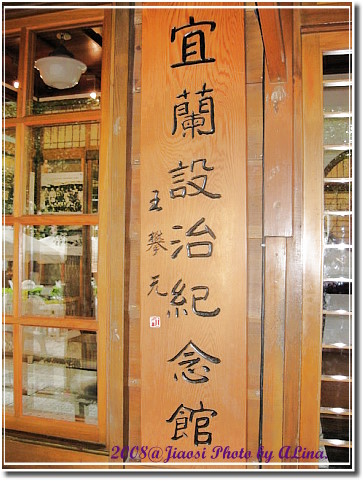 宜蘭設治紀念館
王攀元
2008@Jiaosi Photo by ALina.